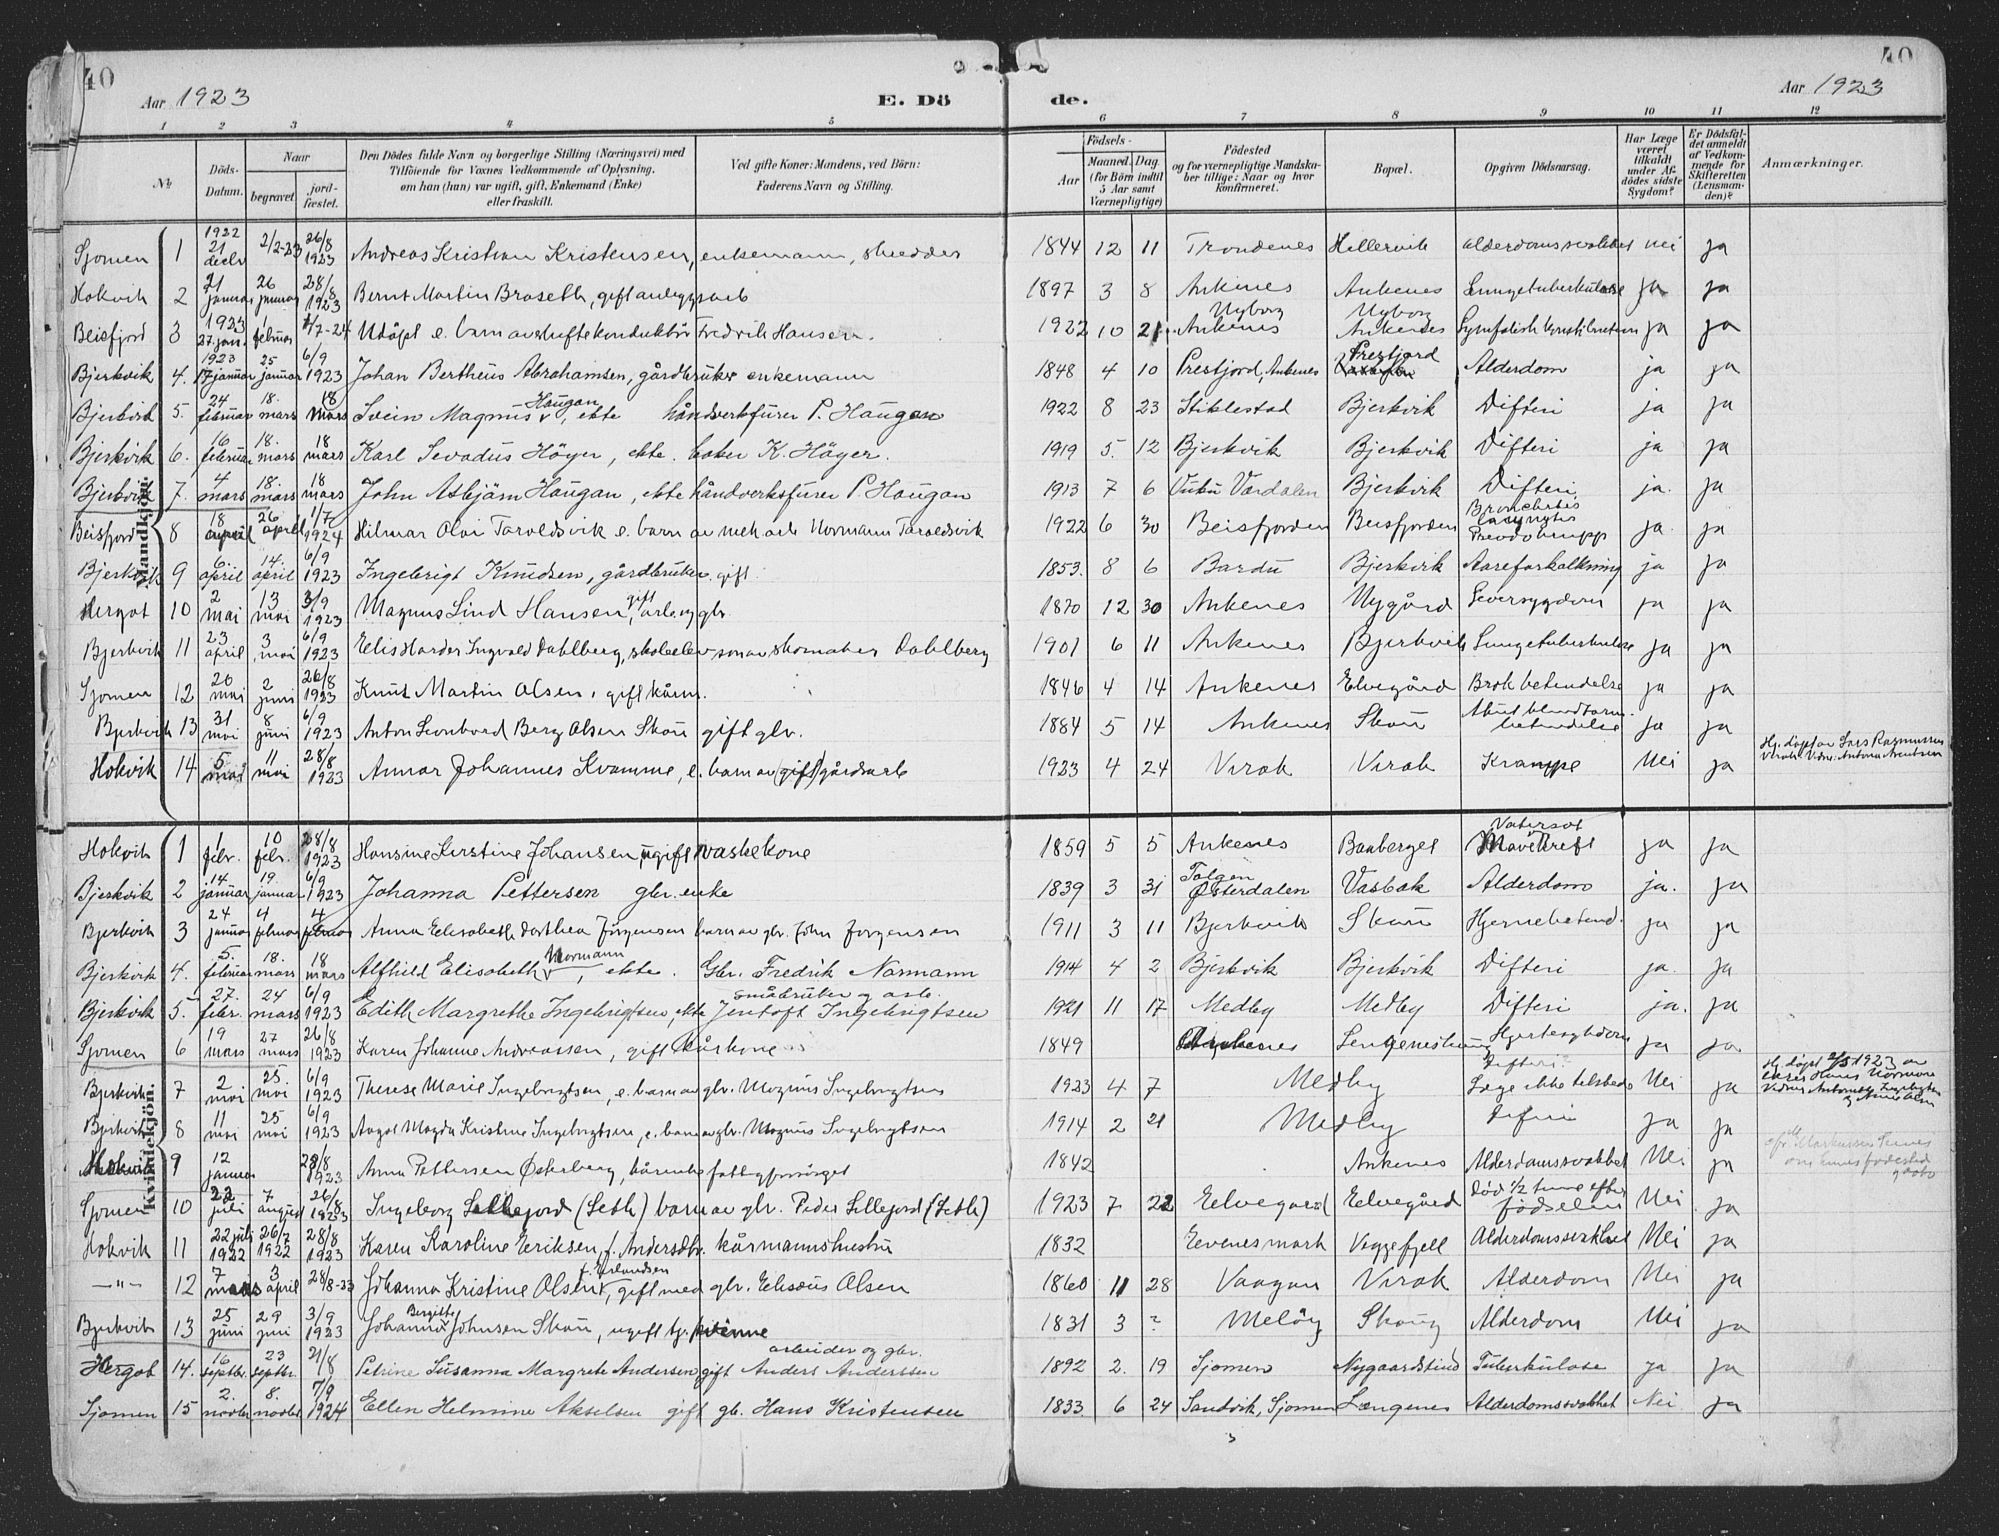 40
40
Aar 1923
E. Dö
de.
Aar 1923
1 2 3 4 5 6 7 8 9 10 11 12
№
Döds-Datum.
Naar
begravet
jordfæstet.
Den Dödes fulde Navn og borgerlige Stilling (Næringsvei) med
Tilföiende for Voxnes Vedkommende af Oplysning.
om han (hun) var ugift, gift, Enkemand (Enke)
eller fraskilt.
Ved gifte Koner: Mandens, ved Börn:
Faderens Navn og Stilling.
Födsels-
Aar
Maaned. Dag.
(for Börn indtil
5 Aar samt
Værnepligtige)
Födested
og for værnepligtige Mandskaber tillige: Naar og hvor
konfirmeret.
Bopæl.
Opgiven Dödsaarsag.
Har Læge
været
tilkaldt
under Afdödes sidste
Sygdom?
Er Dödsfaldet anmeldt
af Vedkommende for
Skifteretten
(Lensmanden)?
Anmærkninger.
Mandkjön.
Sjomen 1 1922 21 decbr 2/2-23 26/8 1923 Andreas Kristian Kristensen, enkemann, skredder 1844 12 11 Trondenes Hellervik alderdomssvakhet nei ja
Hokvik 2 21 januar 26 januar 28/8 1923 Bernt Martin Braseth, gift anleggsarb 1897 3 8 Ankenes Ankenes Lungetuberkulose ja ja
Beisfjord 3 1923 27. jan. 1 februar 1/7-24 Udöpt e. barn av luftekonduktör Fredrik Hansen. 1922 10 21 Nyborg Ankenes Nyborg Ankenes ja ja
Bjerkvik 4. 1923 17 januar 25 januar 6/9 1923 Johan Bertheus Abrahamsen, gårdbruker enkemann 1848 4 10 Prestjord, Ankenes Prestjord Alderdom ja ja
Bjerkvik 5. 24 februar 18. mars 18 mars Svein Magnus Haugan, ekte håndverksfurer P. Haugan 1922 8 23 Stiklestad Bjerkvik Difteri ja ja
Bjerkvik 6. 16 februar 18. mars 18 mars Karl Sevadus Höyer, ekte. baker K. Höyer. 1919 5. 12 Bjerkvik Bjerkvik Difteri ja ja
Bjerkvik 7. 4 mars 18. mars 18 mars John Asbjörn Haugan, ekte håndverksfurer P. Haugan 1913 7 6 Vuku Værdalen Bjerkvik Difteri. ja. ja
Beisfjord 8 18 april 26 april 1/7 1924 Hilmar Olai Taroldsvik e. barn av mek arb Normann Taroldsvik 1922 6 30 Beisfjorden Beisfjorden Bronchitis ja. ja
Bjerkvik 9 6 april 14 april 6/9 1923 Ingebrigt Knudsen, gårdbruker. gift. 1853. 8 6 Bardu Bjerkvik Aareforkalkning ja ja
Hergot 10 2 mai 13 mai 3/9 1923 Magnus Lind Hansen, gift arb. og gbr. 1870 12 30 Ankenes Nygård Leversygdom ja ja
Bjerkvik 11 23 april 3 mai 6/9 1923 Elis Harder Ingvald Dahlberg, skoleelev sön av skomaker Dahlberg 1901 6 11 Ankenes Bjerkvik Lungetuberkulose ja ja
Sjomen 12 20 mai 2 juni 26/8 1923 Knut Martin Olsen, gift kårm. 1846 4 14 Ankenes Elvegård Brokbetendelse ja ja
Bjerkvik 13 31 mai 8 juni 6/9 1923 Anton Leonhard Berg Olsen Skou gift gbr. 1884 5 14 Ankenes Skou Akut blindtarmbetendelse ja ja
Hokvik 14 5 mai 11 mai 28/8 1923 Annar Johannes Kvamme, e. barn av (gift) gårdsarb 1923 4 24 Virak Virak Krampe Nei ja Hj. döpt av Lars Rasmussen Virak. Vidne: Antona Arentsen
Kvindekjön.
Hokvik 1 1 febr. 10 febr. 28/8 1923 Hansine Kirstine Johansen, ugift vaskekone 1859 5 5 Ankenes Banberget Vatersot Mavekreft ja ja
Bjerkvik 2 14 januar 19 januar 6/9 1923 Johanna Pettersen gbr. enke 1839 3 31 Tolgen Österdalen Vasbak Alderdom ja. ja
Bjerkvik 3 24 januar 4 februar 4 februar Anna Elisabeth Dorthea Jörgensen barn av gbr. John Jörgensen 1911 3 11 Bjerkvik Skou Hjernebetend. ja ja
Bjerkvik 4. 5. februar 18. mars 18 mars Alfhild Elisabeth Normann, ekte. Gbr. Fredrik Normann 1914 4 2 Bjerkvik Bjerkvik Difteri ja. ja
Bjerkvik 5. 27. febr. 24 mars 6/9 1923 Edith Margrethe Ingebrigtsen, ekte småbruker og arb. Jentoft Ingebrigtsen 1921 11 17 Medby Medby Difteri ja. ja
Sjomen 6 19 mars 27 mars 26/8 1923 Karen Johanne Andreassen, gift kårkone 1849 Ankenes Hjertesygdom ja ja
Bjerkvik 7 2 mai 25 mai 6/9 1923 Therese Marie Ingebrigtsen, e. barn av gbr. Magnus Ingebrigtsen 1923 4 7 Medby Difteri? Læge ikke tilstede Nei ja Hj. döpt 2/5 1923 av Hans Normann Vidner
Bjerkvik 8 11 mai 25 mai 6/9 1923 Aagot Magda Kristine Ingebrigtsen, e. barn av gbr. Magnus Ingebrigtsen 1914 2 21 Medby Difteri ja ja
Hokvik 9 12 januar 28/8 1923 Anna Pettersen Österberg, kårenke fattigforsörget 1842 Ankenes Alderdomssvakhet Nei ja
Sjomen 10 22 juli 7 august 26/8 1923 Ingeborg Lillefjord (Seth) barn av gbr. Peder Lillefjord (Seth) 1923 7 22 Elvegaard Elvegård död 1/2 time efter födselen Nei ja
Hokvik 11 22 juli 1922 26/7 1922 28/8 1923 Karen Karoline Eriksen f. Andersdtr. kårmannshustru 1832 Evenesmark Veggefjell Alderdomssvakhet Nei ja
—"— 12 7 mars 3 april 28/8-23 Johanna Kristine Olsen f. Erlandsen, gift med gbr. Eliseus Olsen 1860 11 28 Vaagan Virak Alderdom Nei ja
Bjerkvik 13 25 juni 29 juni 3/9 1923 Johanna Bergitte Johnsen Skou, ugift tj. kvinne 1831 3 ? Melöy Skoug Alderdom Nei ja
Hergot 14. 16 septbr. 23 septbr. 21/8 Petrine Susanna Margrete Andersen gift arbeider og gbr. Anders Anderssen 1892 2. 19 Sjomen Nygaardstind Tuberkulose ja ja
Sjomen 15 2. novbr 8. novbr 7/9 1924 Ellen Helmine Akselsen gift gb. Hans Kristensen 1833 6 24 Sandvik, Sjomen Længenes Alderdomssvakhet Nei ja